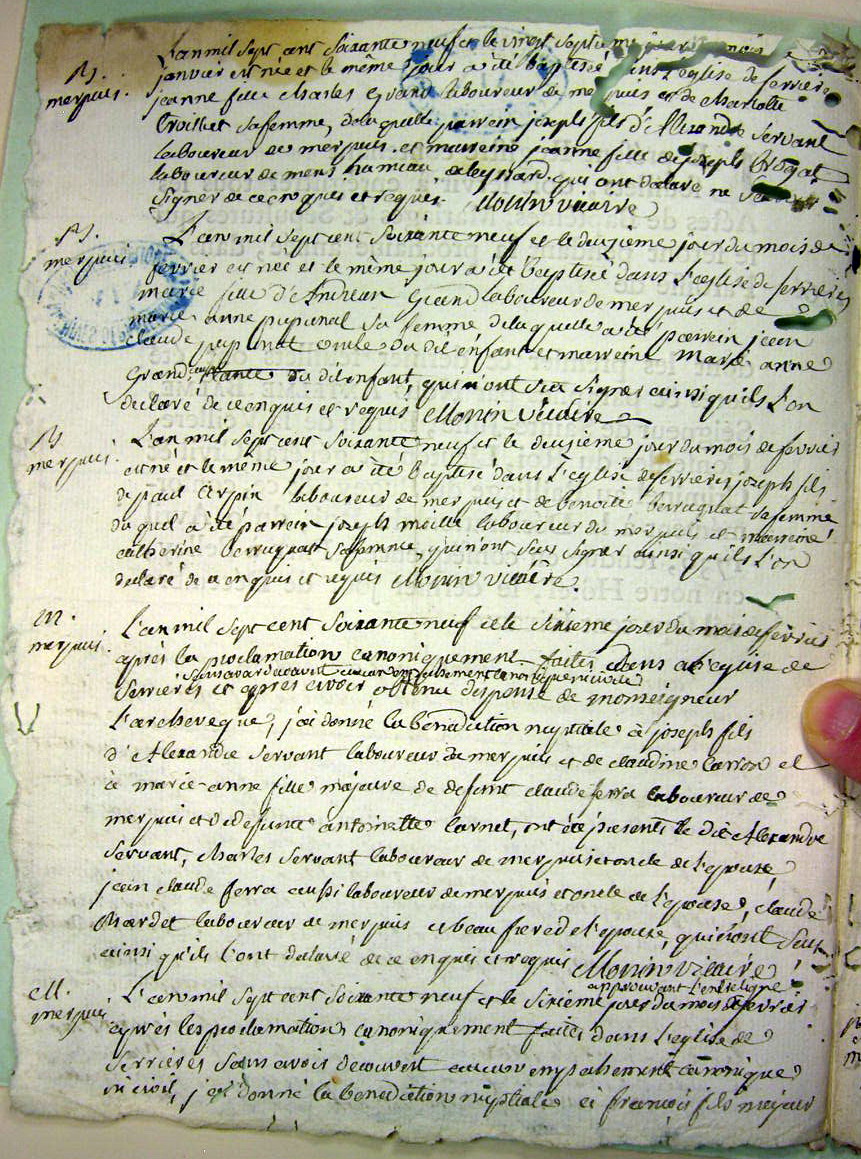 L'an mil sept cent soixante neuf et le vingt septieme
B.
merpuis.
janvier est née et le même jour a été baptisée dans l'eglise de serrieres
jeanne fille Charles Grand laboureur de merpuis et de Charlotte
sa femme, de laquelle parrein joseph fils d'Alexandre Servant
laboureur de merpuis et marreine jeanne fille de joseph
laboureur de mens hameau qui ont declaré ne
signer de ce enquis et requis. Monin vicaire
B.
merpuis
L'an mil sept cent soixante neuf et le deuxieme jour du mois de
fevrier est née et le même jour a été baptisée dans l'eglise de serrieres
marie fille d'Andrean Grand laboureur de merpuis et de
marie anne papunal sa femme de laquelle a été parrein jean
claude papunat oncle du dit enfant et marreine marie anne
Grand, tante du dit enfant, qui n'ont su signer ainsi qu'ils l'on
declaré de ce enquis et requis Monin vicaire
B
merpuis.
L'an mil sept cent soixante neuf et le deuxieme jour du mois de fevrier
est né et le même jour a été baptisé dans l'eglise de serrieres joseph fils
de paul Arpin laboureur de merpuis et de benoite berruquat sa femme
du quel a été parrein joseph meille laboureur du merpuis et marreine
catherine berruquat sa femme, qui n'ont sus signer ainsi qu'ils l'on
declaré de ce enquis et requis Monin vicaire.
m.
merpuis.
L'an mil sept cent soixante neuf et le sixieme jour du mois de fevrier
après la proclamation canoniquement faites dans l'eglise de
sans avoir decouvert aucun empechement canonique ni civil
Serrieres et après avoir obtenu dispense de monseigneur
L'archeveque, j'ai donné la benediction nuptiale à joseph fils
d'Alexandre Servant laboureur de merpuis et de claudine carron et
à marie-anne fille majeure de defunt claude ferra laboureur de
merpuis et de defunte antoinette carnet, ont été presents le dit Alexandre
Servant, Charles Servant laboureur de merpuis et oncle de l'epoux,
jean claude ferra aussi laboureur de merpuis et oncle de l'epouse, claude
Mardet laboureur de merpuis et beau frere de l'epouse, qui n'ont seus
ainsi qu'ils l'ont declaré de ce enquis et requis Monin vicaire
approuvant l'entreligne
M.
merpuis
L'an mil sept cent soixante neuf et le sixieme jour du mois de fevrier
après les proclamations canoniquement faites dans l'eglise de
serrieres sans avoir decouvert aucun empechement canonique
ni civil, j'ai donné la benediction nuptiale à francois fils majeur